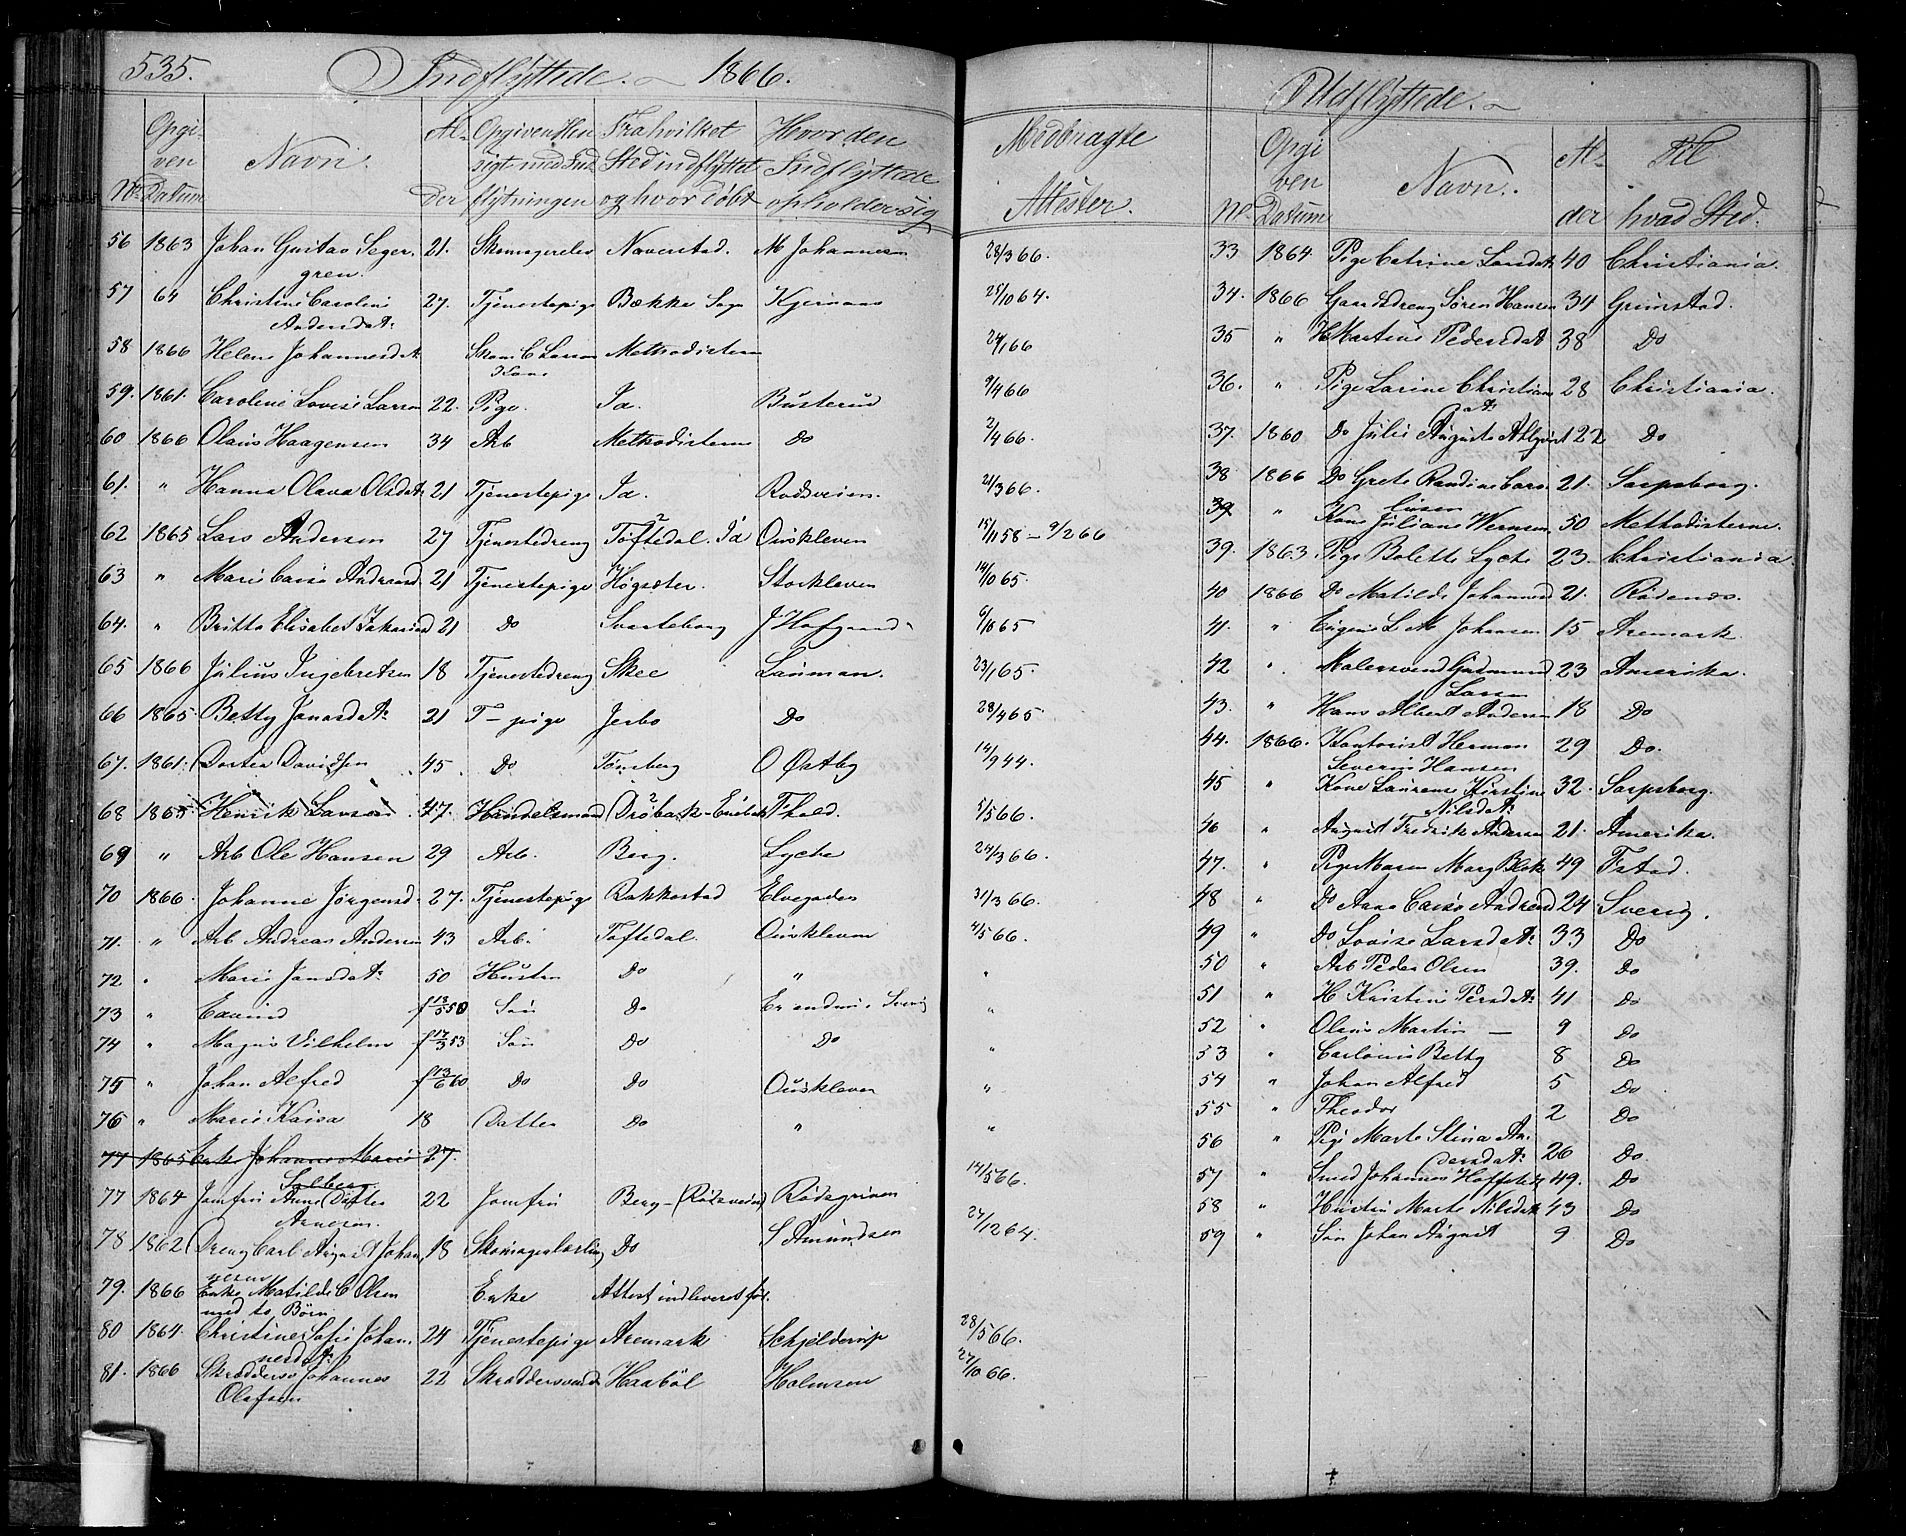 535. Indflyttede. 1866.
No Opgiven Datum Navn. Alder Opgiven Hensigt med Indflytningen Fra hvilket Sted indflyttet og hvor døbt Hvor den Indflyttede opholder sig Medbragte Attester.
56 1863 Johan Gustav Seger- 21. Skomagerelev Naverstad. M Johannesen 28/3 66.
gren.
57 64 Christine Caroline 27. Tjenestepige Bække Sogn 25/10 64.
Andersdatr
58 1866 Helene Johannesdatr Skom C Larsen Methodisterne 24/1 66
Kone
59. 1861. Caroline Lovise Larsen 22. Pige. Id. Busterud 9/4 66
60 1866 Olaus Haagensen 34 Arb Methodisterne Do 2/4 66.
61. " Hanna Olava Olsdatr 21 Tjenestepige Id. Rødsveien. 21/3 66.
62 1865 Lars Andersen 27 Tjenestedreng Töftedal. Id Ouskleven 15/11 58 – 9/2 66
63 " Mari Caisa Andreasd 21 Tjenestepige Högsäter. Storkleven 14/10 65.
64. " Britta Elisabet Zakarisd 21 Do Svarteborg J Hofgaard 9/10 65
65 1866 Julius Ingebretsen 18 Tjenestedreng Skee Lauman. 23/1 65.
66 1865 Betty Jonasdatr 21 T– pige Jerbo Do 28/4 65.
67. 1861. Dortea Davidsen 45 Do Tønsberg O Østby 14/9 44.
68 1865 Henrik Larsen 47. Handelsmand Drøbak – Enebak Thold. 5/5 66.
69 " Arb Ole Hansen 29 Arb. Berg. Lyche 24/3 66.
70 1866. Johanne Jörgensd 27. Tjenestepige Rakkestad Elvegaden 31/3 66.
71. " Arb Andreas Andersen 43 Arb. Töftedal. Ouskleven 4/5 66.
72 " Marie Jansdatr 50 Hustru Do " "
73 " Edvind f 13/5 50 Søn Do Er endnu i Sverig "
74 " Magnus Vilhelm f 17/3 53 Søn Do Do "
75 " Johan Alfred f 13/6 60 Do Do Ouskleven "
76 " Marie Kaisa 18 Datter Do " "
77 1865 Enke Johanne Marie 27.
Solberg
77 1864 Jomfru Anne Dortea 22 Jomfru Berg – (Rødsveien) Rødsgrinen 14/5 66.
Arnesen.
78 1862 Dreng Carl August Johan 18 Skomagerlærling Do S Amundsen 27/12 64.
nesen
79. 1866 Enke Matilde C Olsen Enke Attest indleveret før.
med to Børn
80 1864. Christine Sofie Johan- 24 Tjenestepige Aremark Schjelderup 28/5 66.
nesdatr
81. 1866 Skræddersv Johannes 22 Skræddersvend Haaböl Holmsen 27/10 66.
Olafsen
Udflyttede.
No. Opgiven Datum Navn. Alder Til hvad Sted.
33 1864. Pige Catrine Larsdatr 40 Christiania.
34. 1866 Gaardsdreng Søren Hansen 34 Grimstad.
35 " H Martine Pedersdatr 38 Do
36. " Pige Larine Christians 28 Christiania.
datr
37. 1860 Do Julie Auguste Ahlquist 22 Do
38 1866 Do Grete Randine Carl 21. Sarpsborg.
insen
39 " Kone Juliane Wernsen 50 Methodisterne.
39. 1863. Pige Bolette Lyche 23. Christiania.
40 1866 Do Matilde Johannesd 21. Rødenes.
41. " Eugenie L M Johansen 15 Aremark
42 " Malersvend Gudmund 23 Amerika.
Larsen
43. " Hans Albert Andersen 18 Do
44. 1866. Kontorist Herman 29 Do.
Severin Hansen
45 " Kone Laurense Kirstine 32. Sarpsborg.
Nilsdatr
46 " August Fredrik Andersen 21. Amerika.
47. " Pige Maren Marg Blek 49 Fstad.
48 " Do Anna Caisa Andreasd 24 Sverig.
49 " Do Lovise Larsdatr 33 Do
50 " Arb Peder Olsen 39. Do
51 " H Kristine Persdatr 41 Do
52 " Olaus Martin — 9 Do
53 " Carlönie Betty 8 Do
54 " Johan Alfred 5 Do
55 " Theodor 2 Do
56 " Pige Marte Stina An- 26 Do.
dersdatr
57 " Smed Johannes Hoffstedt 49. Do
58 " Hustru Marte Nilsdatr 43 Do
59 " Søn Johan August 9 Do